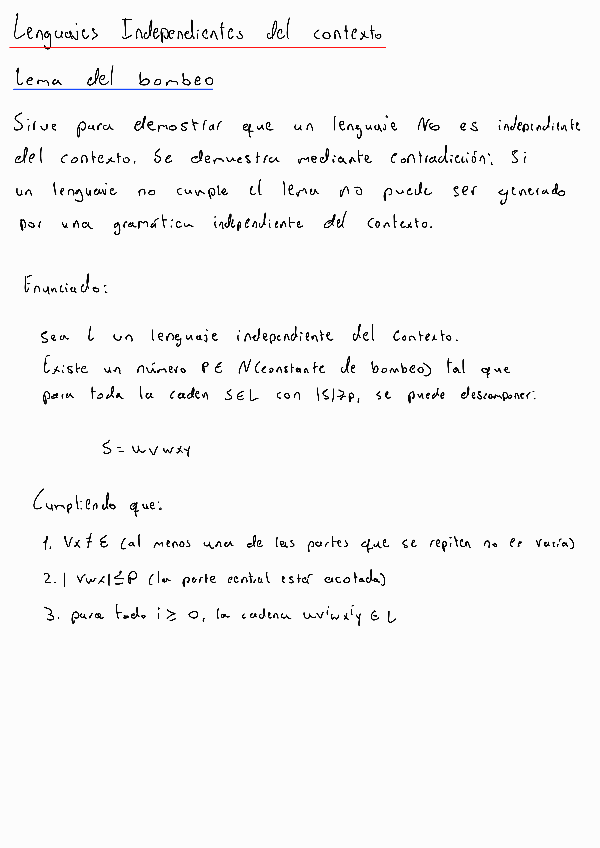 Lenguajes Independientes del contexto
Lema del bombeo
Sirve para demostrar que un lenguaje No es independiente
del contexto. Se demuestra mediante contradicción: Si
un lenguaje no cumple el lema no puede ser generado
por una gramática independiente del contexto.
Enunciado:
Sea L un lenguaje independiente del contexto.
Existe un número P ∈ N (constante de bombeo) tal que
para toda la caden S ∈ L con |S| ≥ p, se puede descomponer:
S = uvwxy
Cumpliendo que:
1. Vx ≠ ε (al menos una de las partes que se repiten no es vacía)
2. |vwx| ≤ P (la parte central estar acotada)
3. para todo i ≥ 0, la cadena uvⁱwxⁱy ∈ L